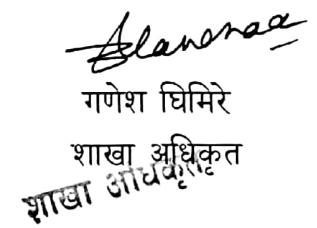 गणेश घिमिरे
शाखा अधिकृत
शाखा अधिकृत